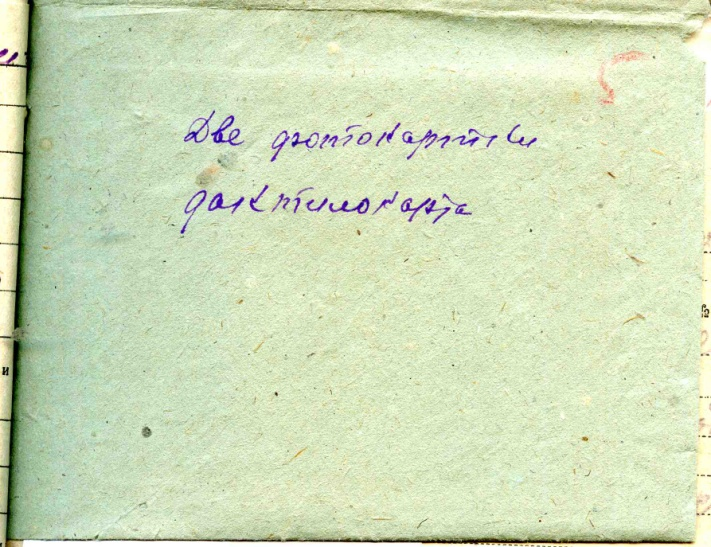 Две фотокарточки
дактилокарта